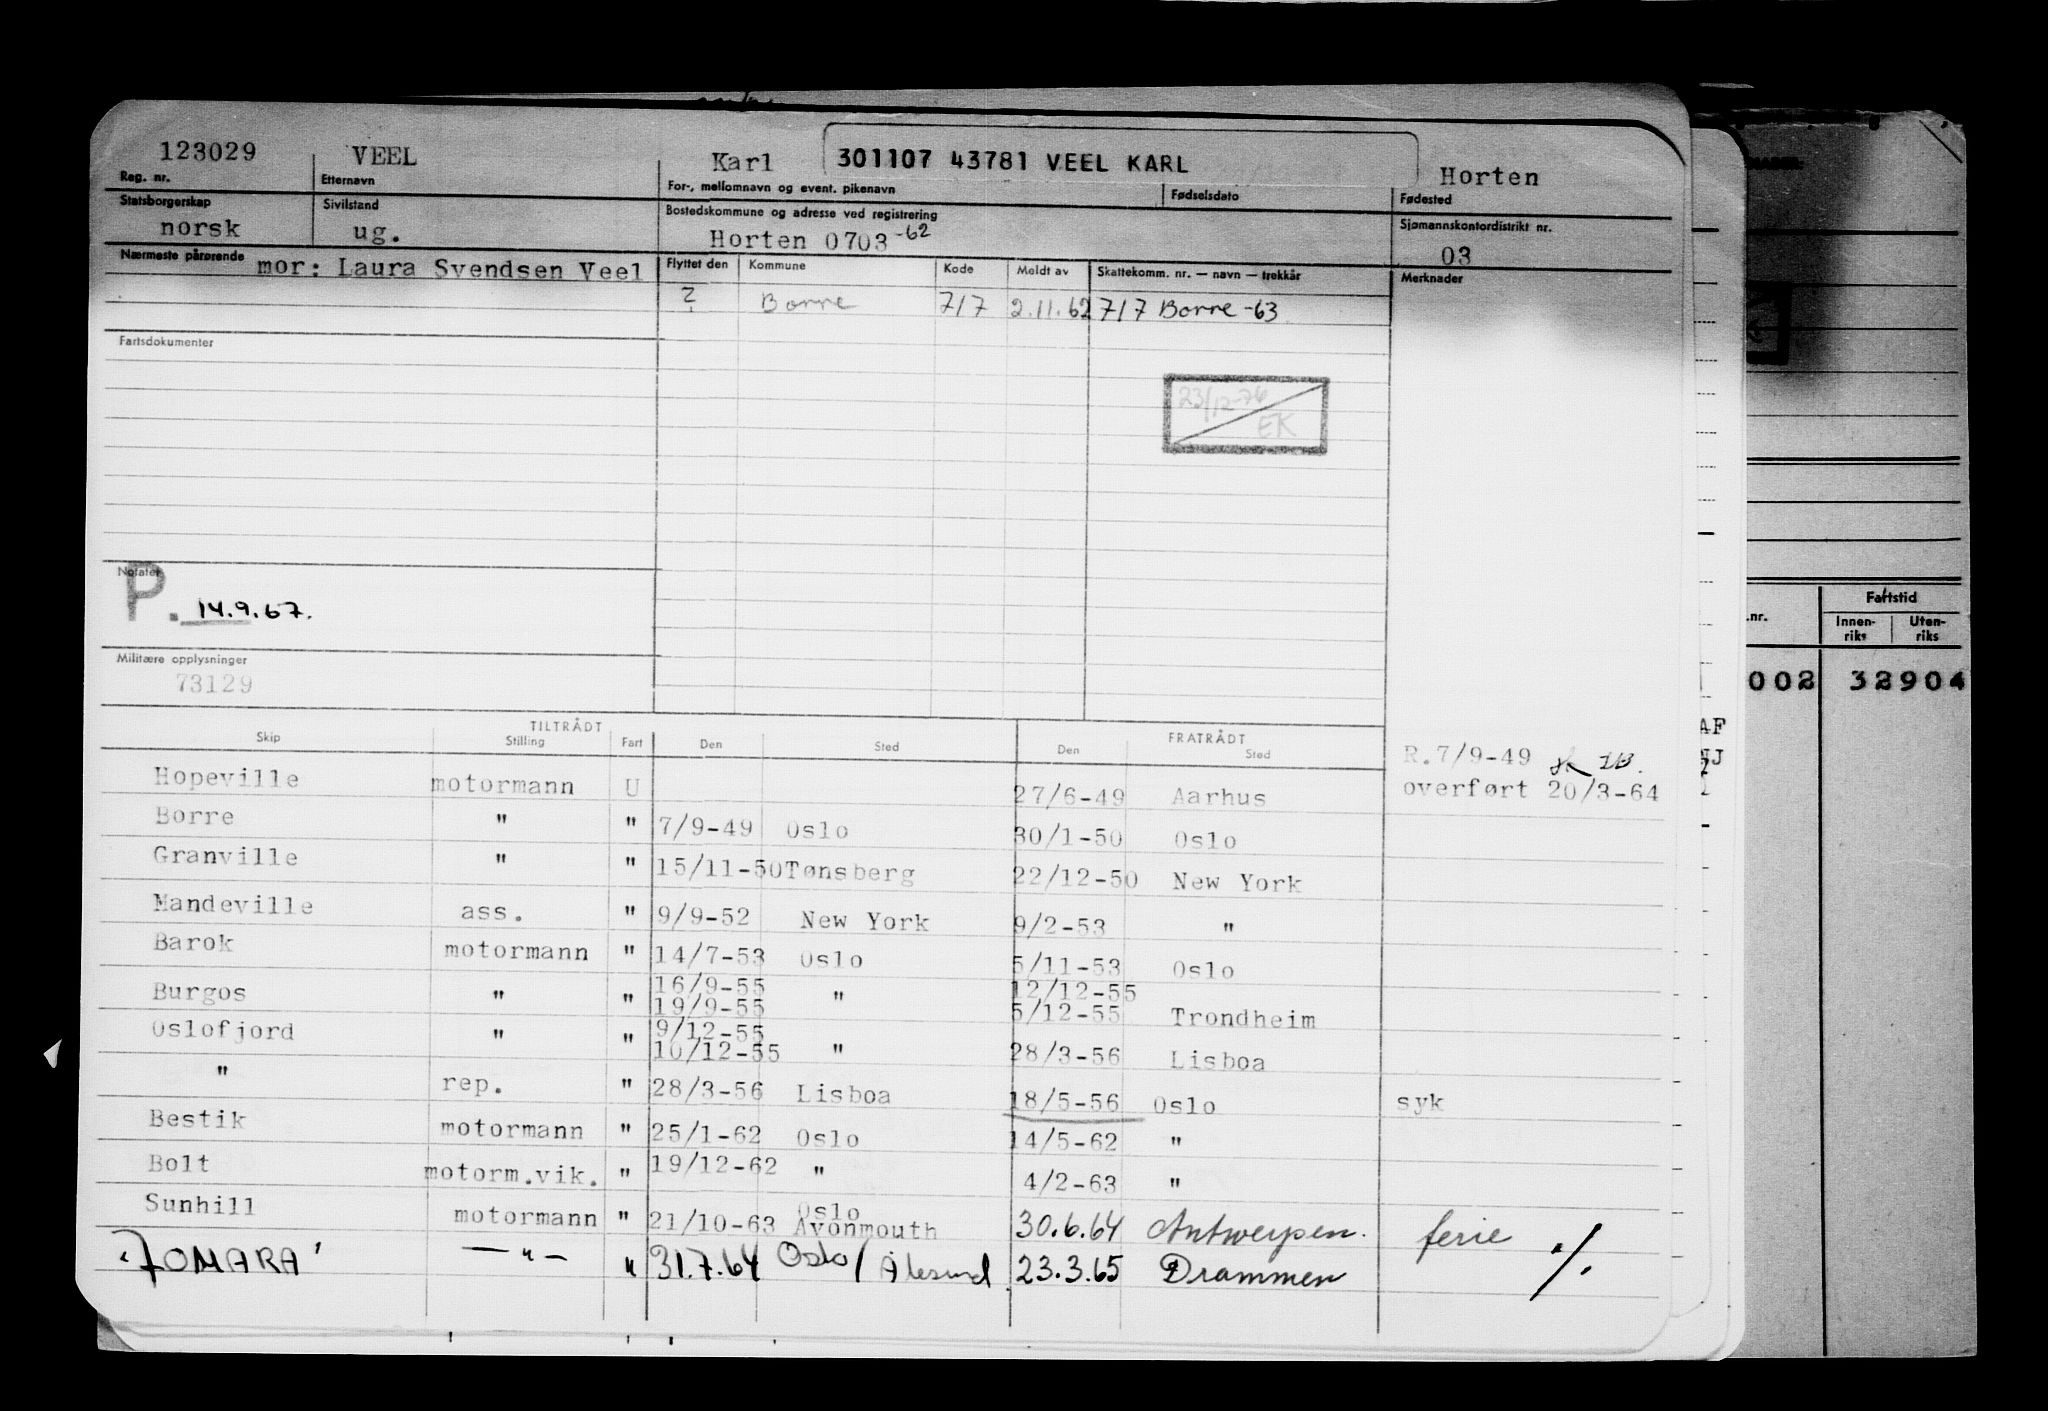 123029 VEEL Karl 301107 43781 VEEL KARL Horten
Reg. nr. Etternavn For-, mellomnavn og event. pikenavn Fødselsdato Fødested
Statsborgerskap Sivilstand Bostedskommune og adresse ved registrering Sjømannskontordistrikt nr.
norsk ug. Horten 0703 -62 03
Nærmeste pårørende mor: Laura Svendsen Veel Flyttet den Kommune Kode Meldt av Skattekomm. nr. — navn — trekkår Merknader
? Borre 717 2.11.62 717 Borre -63
Fartsdokumenter
23/12-76
EK
Notater
P. 14.9.67.
Militære opplysninger
73129
TILTRÅDT FRATRÅDT
Skip Stilling Fart Den Sted Den Sted
R.7/9-49
overført 20/3-64
Hopeville motormann U 27/6-49 Aarhus
Borre " " 7/9-49 Oslo 30/1-50 Oslo
Granville " " 15/11-50 Tønsberg 22/12-50 New York
Mandeville ass. " 9/9-52 New York 9/2-53 "
Barok motormann " 14/7-53 Oslo 5/11-53 Oslo
16/9-55 12/12-55
Burgos " " 19/9-55 " 5/12-55 Trondheim
9/12-55
Oslofjord " " 10/12-55 " 28/3-56 Lisboa
" rep. " 28/3-56 Lisboa 18/5-56 Oslo syk
Bestik motormann " 25/1-62 Oslo 14/5-62 "
Bolt motorm.vik. " 19/12-62 " 4/2-63 "
Oslo
Sunhill motormann " 21/10-63 Avonmouth 30.6.64 Antwerpen. ferie ./.
"JOMARA" —"— " 31.7.64 Oslo / Ålesund 23.3.65 Drammen
.nr. Fartstid
Innen- Uten-
riks riks
002 32904
AF